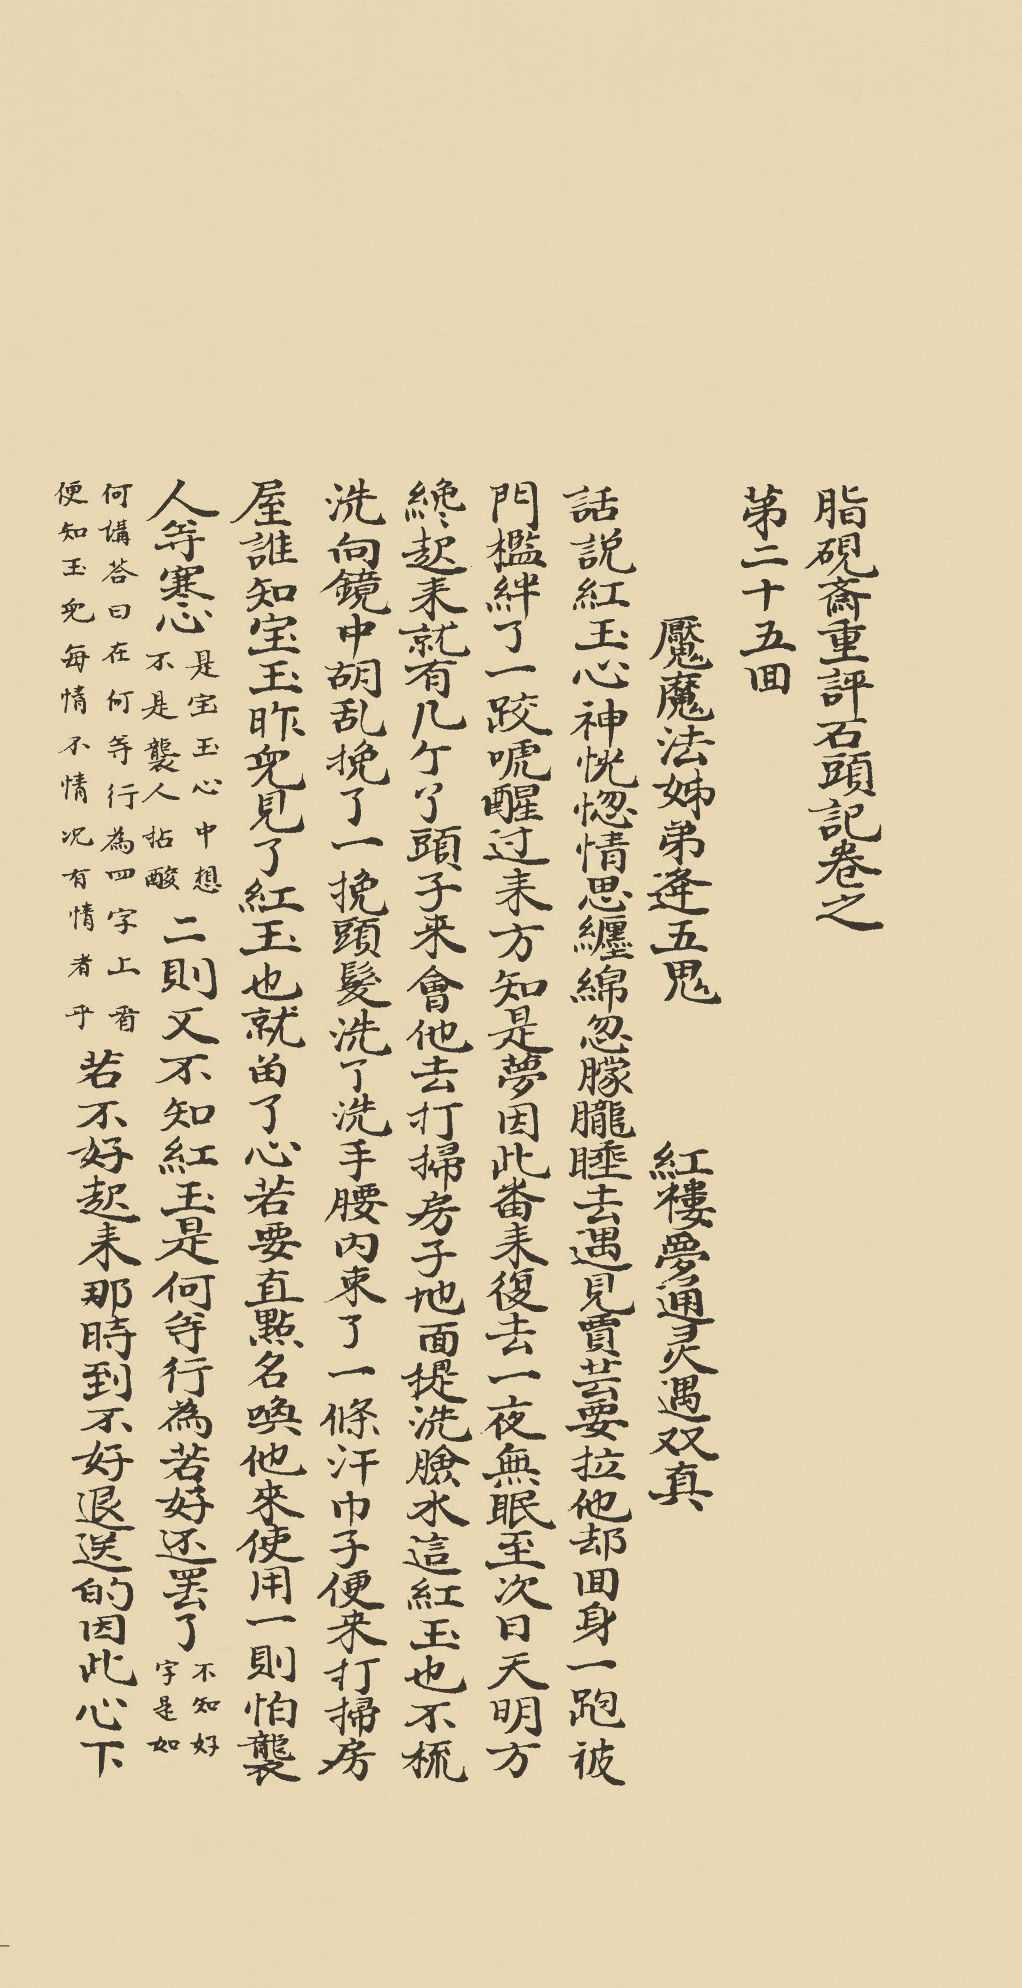 脂硯齋重評石頭記卷之
第二十五回
魘魔法姊弟逢五鬼　紅樓夢通灵遇双真
話説紅玉心神恍惚情思纏綿忽朦朧睡去遇見賈芸要拉他却回身一跑被
門檻絆了一跤唬醒过来方知是夢因此番来復去一夜無眠至次日天明方
纔起来就有几个丫頭子来會他去打掃房子地面提洗臉水這紅玉也不梳
洗向鏡中胡乱挽了一挽頭髮洗了洗手腰内束了一條汗巾子便来打掃房
屋誰知宝玉昨兒見了紅玉也就㽞了心若要直點名喚他來使用一則怕襲
人等寒心
是宝玉心中想
不是襲人拈酸
二則又不知紅玉是何等行為若好还罢了
不知好
字是如
何講荅曰在何等行為四字上看
便知玉兒每情不情况有情者乎
若不好起来那時到不好退送的因此心下